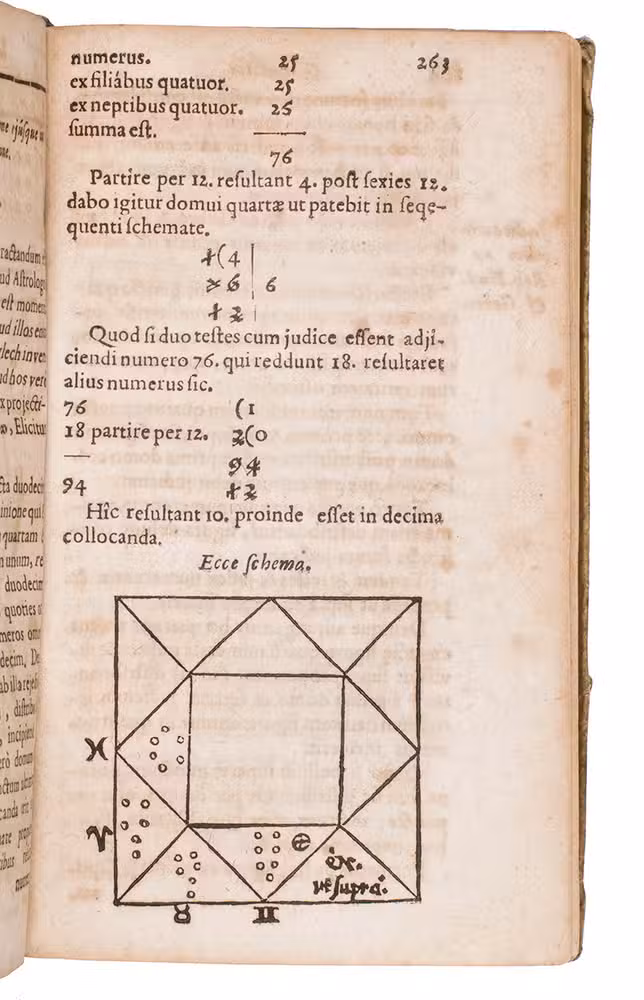 numerus. 25 263
ex filiábus quatuor. 25
ex neptibus quatuor. 26
ſumma eſt.
76
Partire per 12. reſultant 4. poſt ſexies 12.
dabo igitur domui quartæ ut patebit in ſeqe-
quenti ſchemate.
1(4
76 6
12
Quod ſi duo teſtes cum judice eſſent adji-
ciendi numero 76. qui reddunt 18. reſultaret
alius numerus ſic.
76 (1
18 partire per 12. 2(0
94
94 12
Hîc reſultant 10. proinde eſſet in decima
collocanda.
Ecce ſchema.
♓
♈
⊕
&c.
ut ſupra.
♉ ♊